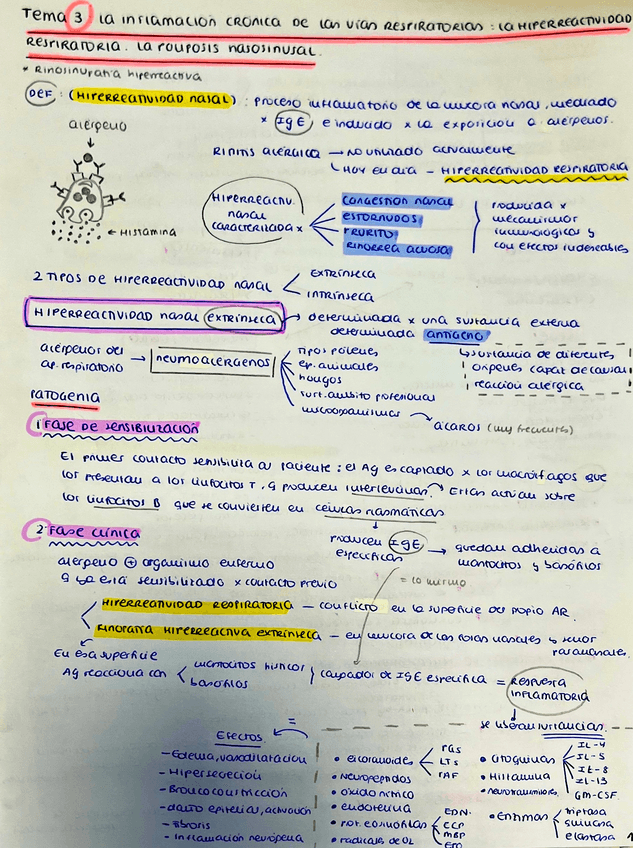 Tema 3 La inflamación crónica de las vías respiratorias: la hiperreactividad
respiratoria. La poliposis nasosinusal.
* Rinosinupatía hiperreactiva
DEF: (HIPERREACTIVIDAD NASAL): proceso inflamatorio de la mucosa nasal, mediado
x IgE e inducido x la exposición a alérgenos.
alérgeno
Histamina
RINITIS ALÉRGICA → No utilizado actualmente
↳ Hoy en día - HIPERREACTIVIDAD RESPIRATORIA
HIPERREACTIV.
NASAL
CARACTERIZADA x
CONGESTIÓN NASAL
ESTORNUDOS
PRURITO
RINORREA ACUOSA
producida x
mecanismos
inmunológicos y
con efectos indeseables
2 TIPOS DE HIPERREACTIVIDAD NASAL
EXTRÍNSECA
INTRÍNSECA
HIPERREACTIVIDAD NASAL EXTRÍNSECA → determinada x una sustancia externa
determinada antígeno
↳ sustancia de diferentes
orígenes capaz de causar
reacción alérgica
alérgenos del
ap. respiratorio
→ NEUMOALERGENOS
tipos pólenes
ep. animales
hongos
sust. ámbito profesional
microorganismos → ácaros (muy frecuentes)
PATOGENIA
1 FASE DE SENSIBILIZACIÓN
El primer contacto sensibiliza al paciente: el Ag es captado x los macrófagos que
los presentan a los linfocitos T, q producen interleucinas. Estas actúan sobre
los linfocitos B que se convierten en células plasmáticas
↓
producen IgE
específicas
→ quedan adheridas a
mastocitos y basófilos
2 FASE CLÍNICA
alérgeno + organismo enfermo
q ya está sensibilizado x contacto previo
= lo mismo
HIPERREACTIVIDAD RESPIRATORIA - conflicto en la superficie del propio AR.
RINOPATÍA HIPERREACTIVA EXTRÍNSECA - en mucosa de las fosas nasales y senos
paranasales.
En esa superficie
Ag reacciona con
mastocitos
basófilos
IgE específica = RESPUESTA
INFLAMATORIA
=
Efectos
- Edema, vasodilatación
- Hipersecreción
- Broncoconstricción
- daño epitelial, activación
- Fibrosis
- Inflamación neurógena
se liberan sustancias.
• eicosanoides
PGs
LTs
PAF
• Neuropéptidos
• óxido nítrico
• endotelina
• prot. eosinófilas
EDN.
ECP
MBP
EPO
• radicales de O2
• citoquinas
IL-4
IL-5
IL-8
IL-13
GM-CSF.
• Histamina
• neurotransmisores
• Enzimas
triptasa
quimasa
elastasa